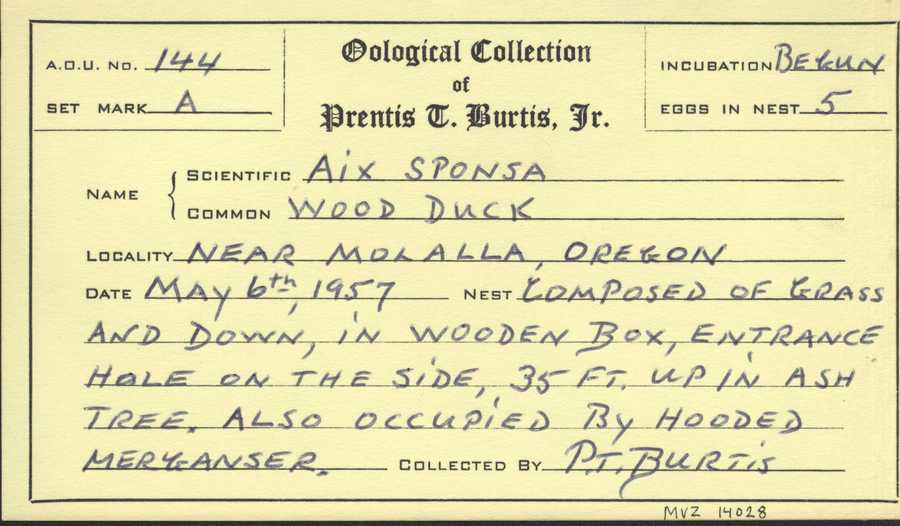 A.O.U. No. 144
SET MARK A
Oological Collection
of
Prentis T. Burtis, Jr.
INCUBATION BEGUN
EGGS IN NEST 5
NAME
SCIENTIFIC AIX SPONSA
COMMON WOOD DUCK
LOCALITY NEAR MOLALLA, OREGON
DATE MAY 6th, 1957 NEST COMPOSED OF GRASS
AND DOWN, IN WOODEN BOX, ENTRANCE
HOLE ON THE SIDE, 35 FT. UP IN ASH
TREE. ALSO OCCUPIED BY HOODED
MERGANSER. COLLECTED BY P.T. BURTIS
MVZ 14028